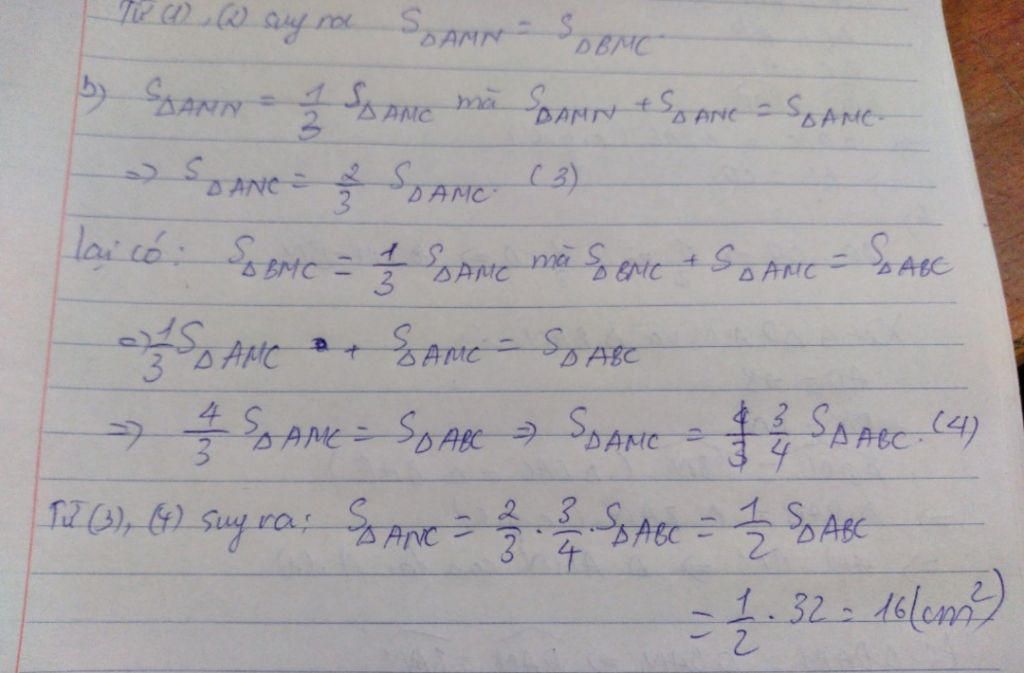 Từ (1), (2) suy ra S_ΔAMN = S_ΔBMC.
b) S_ΔAMN = 1/3 S_ΔAMC mà S_ΔAMN + S_ΔANC = S_ΔAMC.
=> S_ΔANC = 2/3 S_ΔAMC. (3)
lại có: S_ΔBMC = 1/3 S_ΔAMC mà S_ΔBMC + S_ΔAMC = S_ΔABC
=> 1/3 S_ΔAMC + S_ΔAMC = S_ΔABC
=> 4/3 S_ΔAMC = S_ΔABC => S_ΔAMC = 3/4 S_ΔABC. (4)
Từ (3), (4) suy ra: S_ΔANC = 2/3 . 3/4 . S_ΔABC = 1/2 S_ΔABC
= 1/2 . 32 = 16 (cm²)